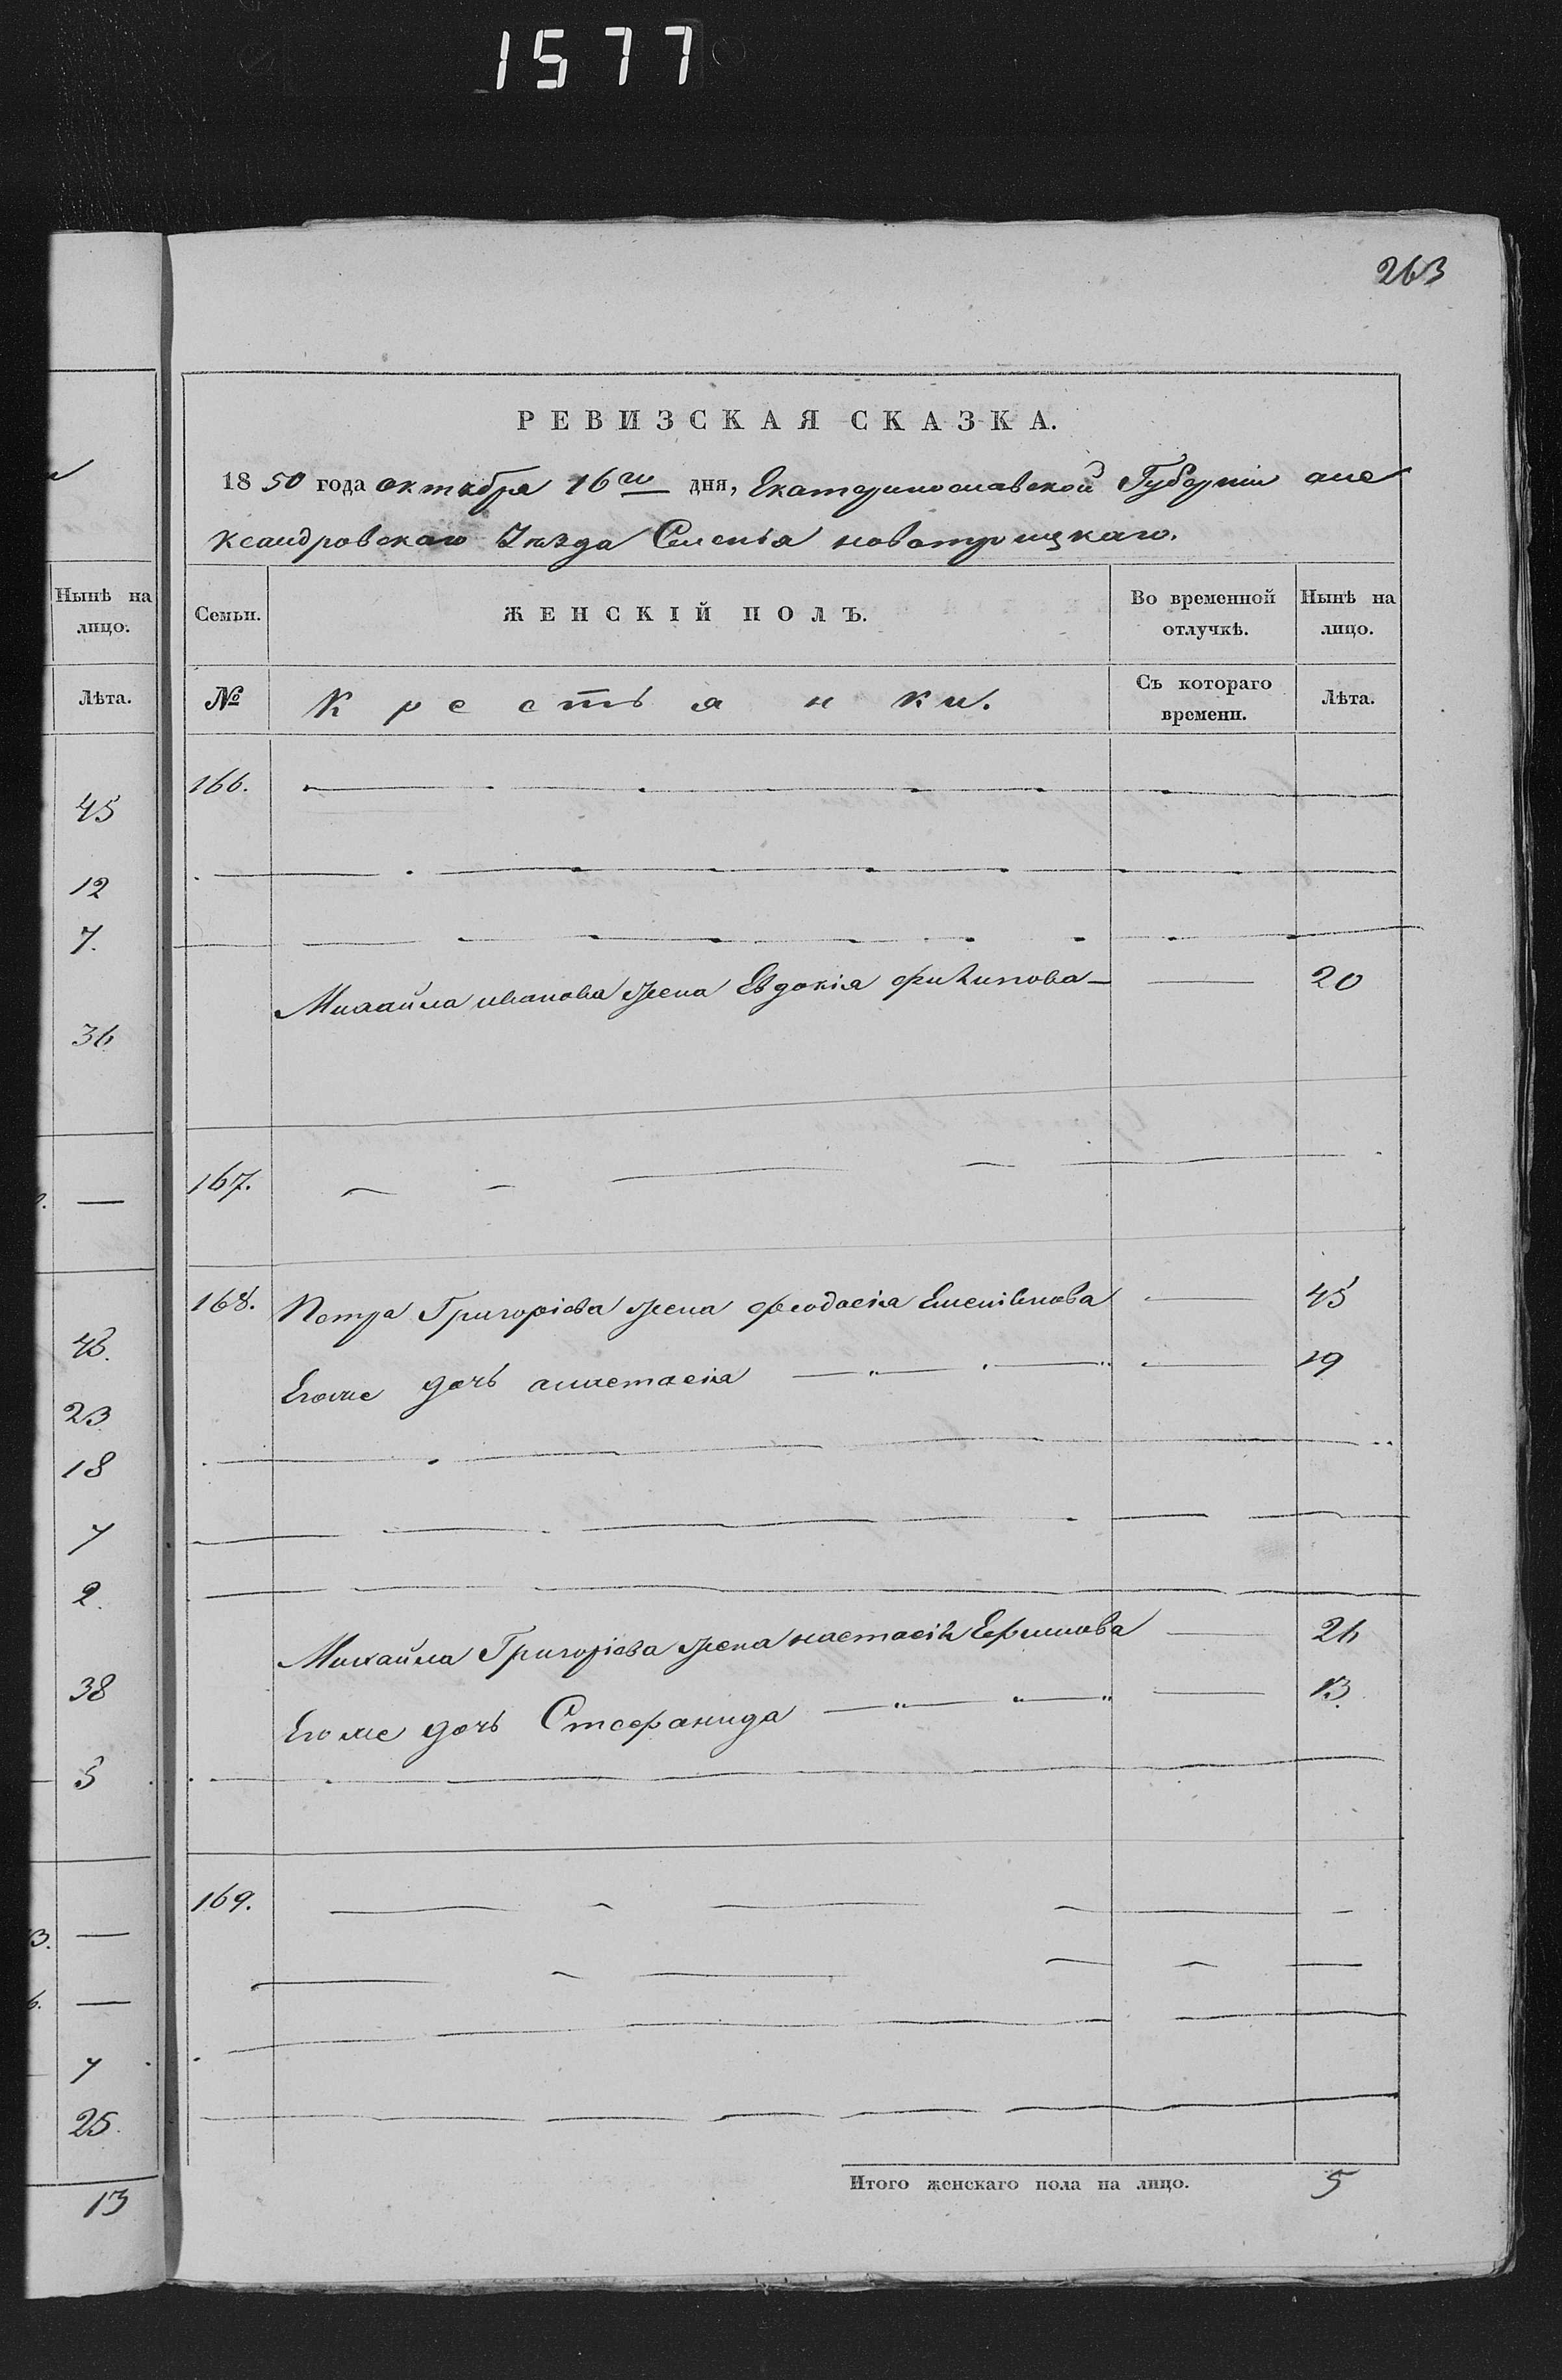 1577
263
РЕВИЗСКАЯ СКАЗКА.
1850 года октября 16го дня, Екатеринославской Губерніи але
ксандровскаго Уѣзда Селенія новотроицкаго.
Нынѣ на лицо.
Лѣта.
45
12
7.
36
—
43.
23
18
7
2.
38
5
3. —
6. —
7
25.
13
Семьи. ЖЕНСКІЙ ПОЛЪ. Во временной отлучкѣ. Нынѣ на лицо.
№ Крестьянки. Съ котораго времени. Лѣта.
166.
Михайла иванова жена Евдокія филипова — — 20
167.
168. Петра Григоріева жена феодосія Емельянова — 45
Егоже дочь анастасія — „ — „ — 19
Михайла Григоріева жена настасія Ефимова — 26
Егоже дочь Стефанида — „ — „ — „ — 13.
169.
Итого женскаго пола на лицо. 5